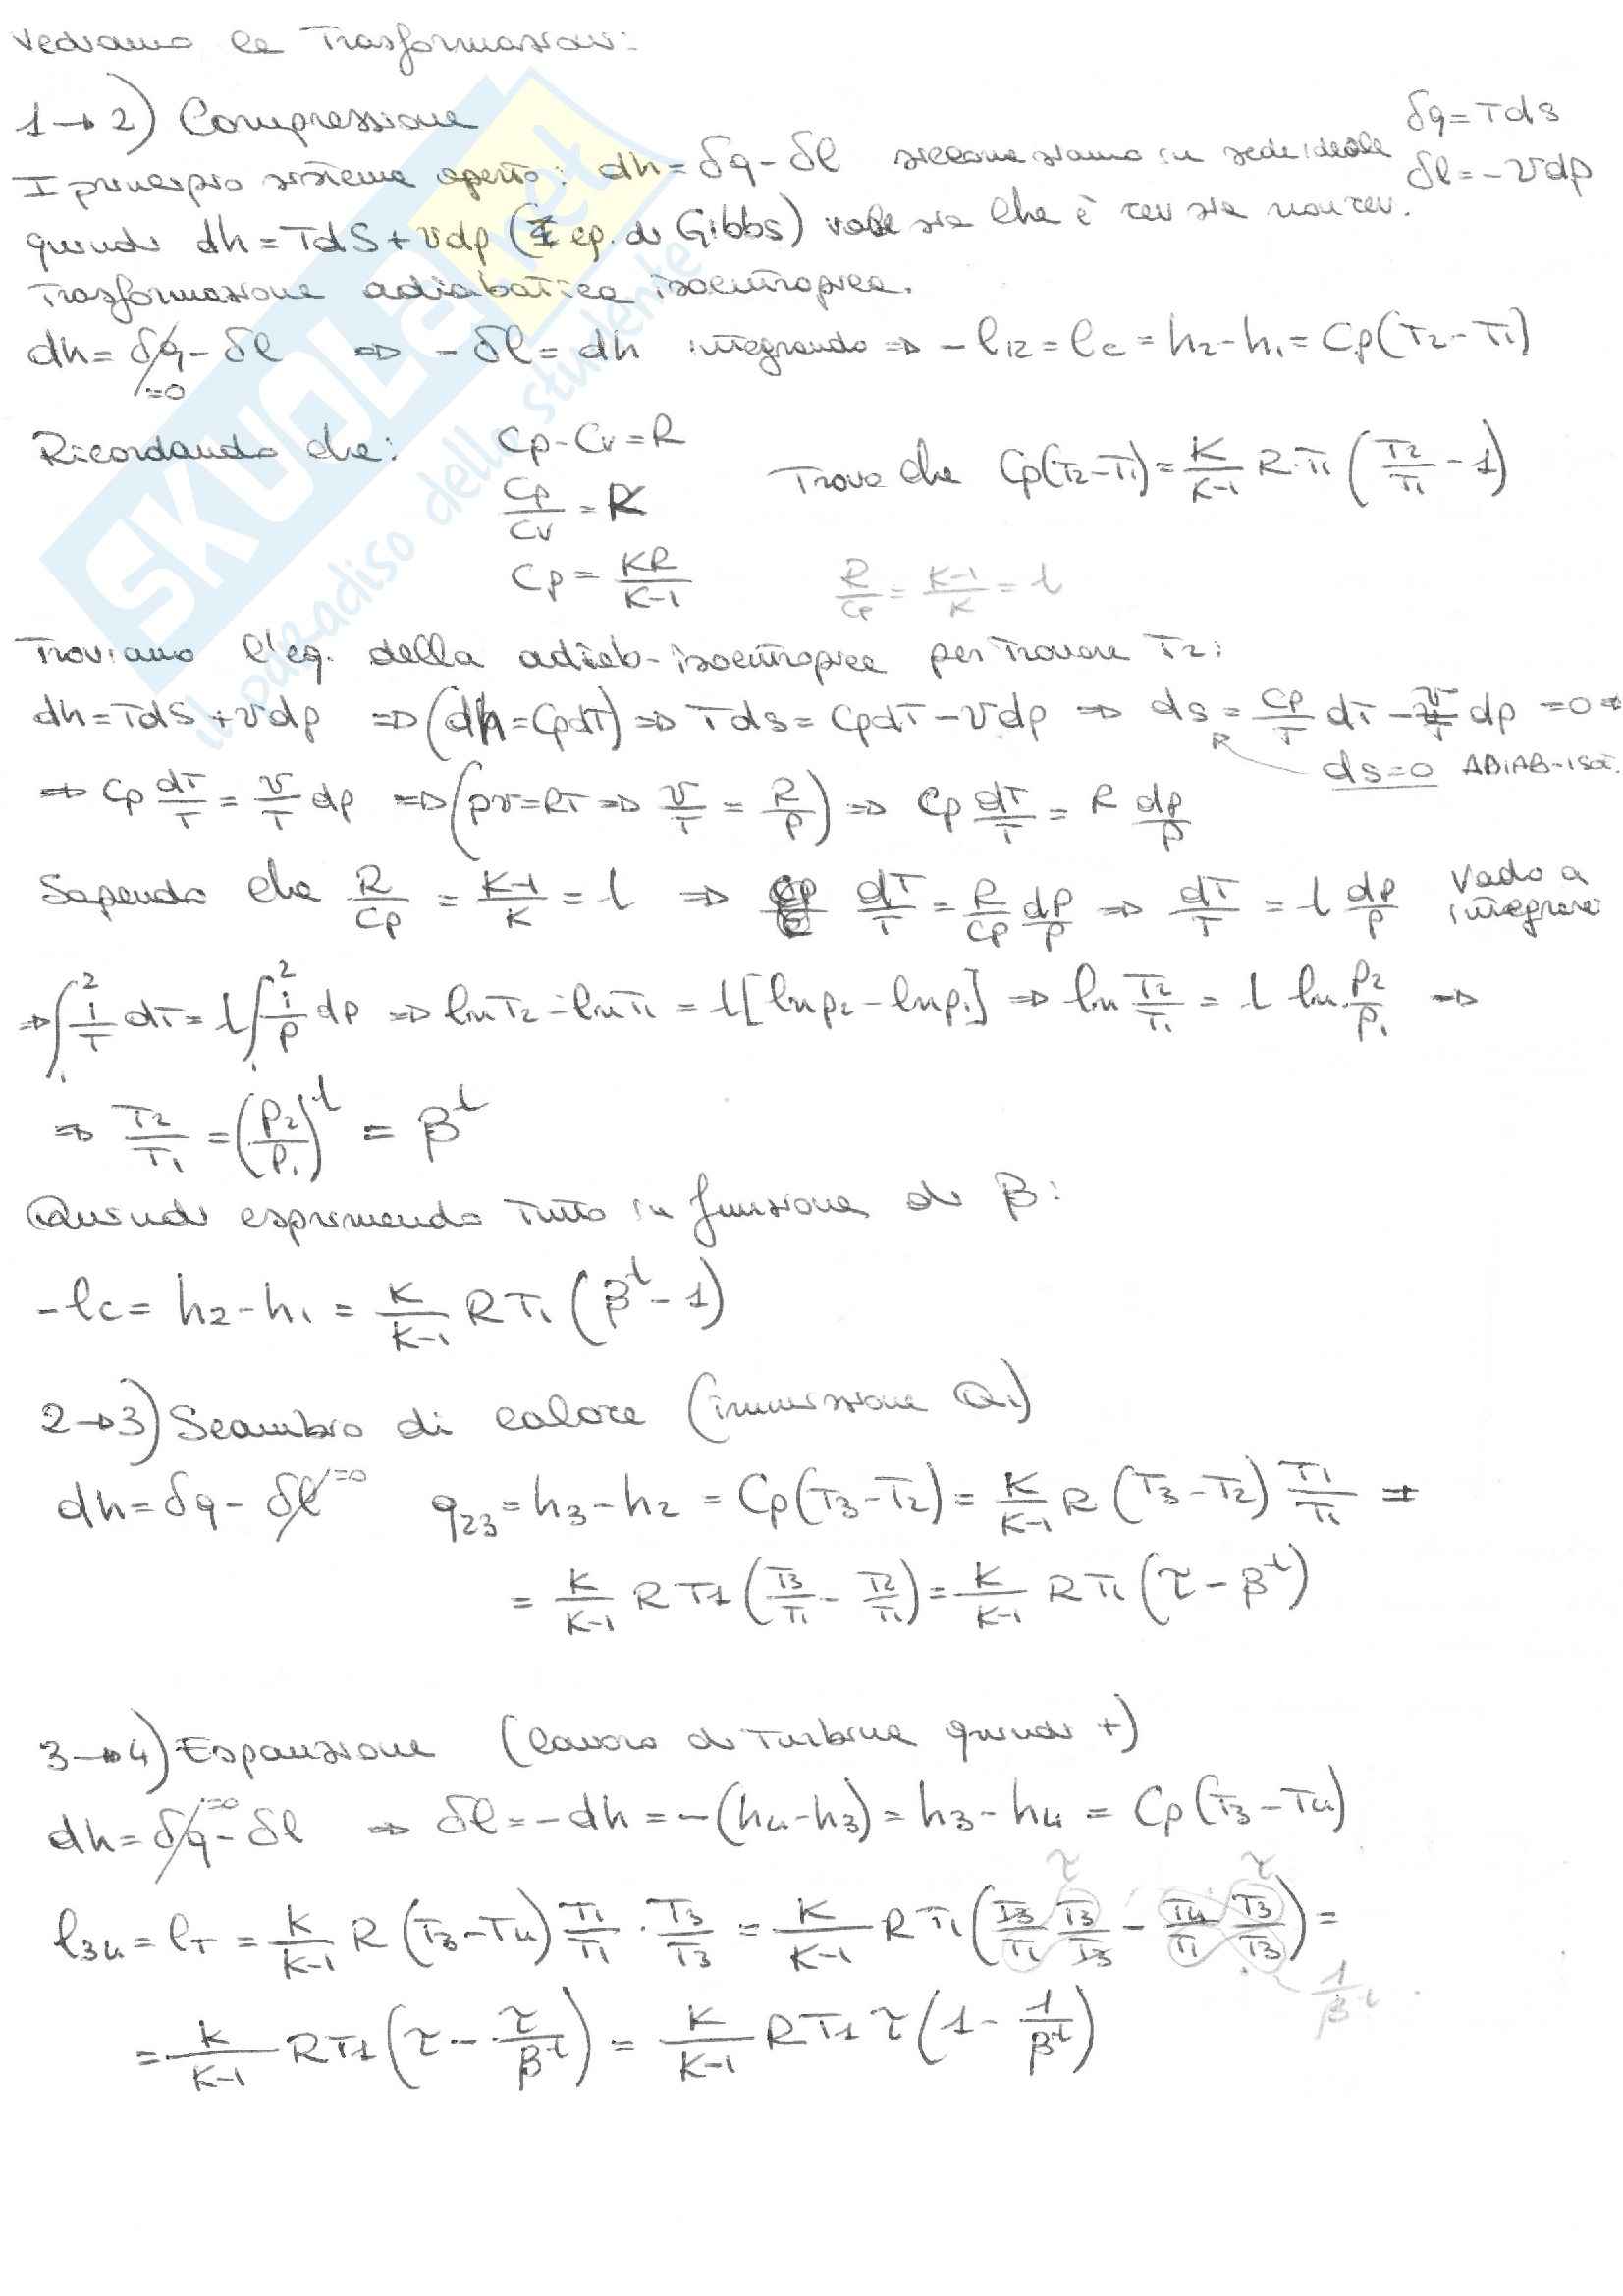 Vediamo le Trasformazioni:
1→2) Compressione
δq = Tds
I principio sistema aperto: dh = δq - δl siccome siamo in sede ideale
δl = -vdp
quindi dh = Tds + vdp (I eq. di Gibbs) vale sia che è rev sia non rev.
Trasformazione adiabatica isoentropica.
dh = δq - δl ⇒ -δl = dh integrando ⇒ -l12 = lc = h2 - h1 = Cp(T2 - T1)
=0
Ricordando che: Cp - Cv = R
Trovo che Cp(T2-T1) = K/(K-1) R·T1 (T2/T1 - 1)
Cp/Cv = K
Cp = KR/(K-1)
R/Cp = (K-1)/K = l
Troviamo l'eq. della adiab-isoentropica per trovare T2:
dh = Tds + vdp ⇒ (dh = CpdT) ⇒ Tds = CpdT - vdp ⇒ ds = Cp/T dT - v/T dp = 0 ⇒
ds=0 ADIAB-ISOE.
⇒ Cp dT/T = v/T dp ⇒ (pv = RT ⇒ v/T = R/P) ⇒ Cp dT/T = R dp/P
Sapendo che R/Cp = (K-1)/K = l ⇒ dT/T = R/Cp dp/P ⇒ dT/T = l dp/P Vado a integrare
⇒ ∫₁² 1/T dT = l ∫₁² 1/P dp ⇒ lnT2 - lnT1 = l[lnp2 - lnp1] ⇒ ln T2/T1 = l ln P2/P1 ⇒
⇒ T2/T1 = (P2/P1)^l = β^l
Quindi esprimendo tutto in funzione di β:
-lc = h2 - h1 = K/(K-1) R T1 (β^l - 1)
2→3) Scambio di calore (immissione Q1)
dh = δq - δl =0 q23 = h3 - h2 = Cp(T3 - T2) = K/(K-1) R (T3 - T2) T1/T1 =
= K/(K-1) R T1 (T3/T1 - T2/T1) = K/(K-1) R T1 (τ - β^l)
3→4) Espansione (lavoro di turbina quindi +)
dh = δq - δl ⇒ δl = -dh = -(h4 - h3) = h3 - h4 = Cp(T3 - T4)
=0
τ τ
l34 = lT = K/(K-1) R (T3 - T4) T1/T1 · T3/T3 = K/(K-1) R T1 (T3/T1 T3/T3 - T4/T1 T3/T3) =
1/β^l
= K/(K-1) R T1 (τ - τ/β^l) = K/(K-1) R T1 τ (1 - 1/β^l)
SKUOLA.net
il paradiso dello studente